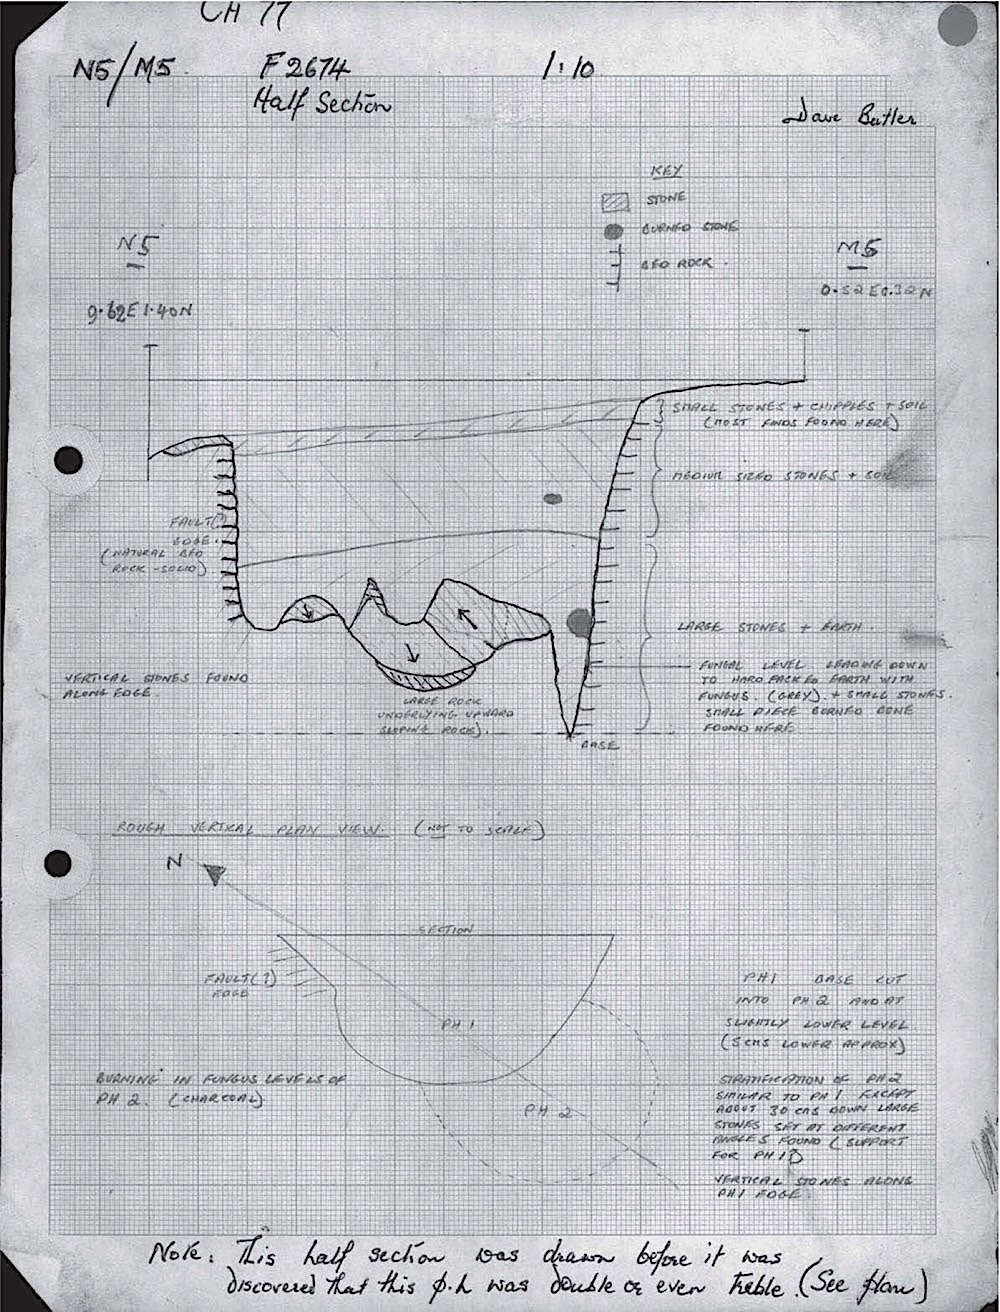 CH 77
N5/M5. F2674 1:10
Half Section
Dave Butler
KEY
STONE
BURNED STONE
BED ROCK.
N5
M5
9.62E 1.40N
0.52E0.32N
SMALL STONES + CHIPPLES + SOIL
(MOST FINDS FOUND HERE)
MEDIUM SIZED STONES + SOIL
FAULT(?)
EDGE.
(NATURAL BED
ROCK-SOLID)
LARGE STONES + EARTH.
VERTICAL STONES FOUND
ALONG EDGE.
FUNGAL LEVEL LEADING DOWN
TO HARD PACKED EARTH WITH
FUNGUS. (GREY). + SMALL STONES.
SMALL PIECE BURNED BONE
FOUND HERE.
LARGE ROCK
UNDERLYING UPWARD
SLOPING ROCK).
BASE
ROUGH VERTICAL PLAN VIEW. (NOT TO SCALE)
N
SECTION
FAULT(?)
EDGE
PH 1
PH1 BASE CUT
INTO PH 2 AND AT
SLIGHTLY LOWER LEVEL
(5 CMS LOWER APPROX)
BURNING IN FUNGUS LEVELS OF
PH 2. (CHARCOAL)
PH 2
STRATIFICATION OF PH 2
SIMILAR TO PH 1 EXCEPT
ABOUT 30 CMS DOWN LARGE
STONES SET AT DIFFERENT
ANGLES FOUND (SUPPORT
FOR PH 1)
VERTICAL STONES ALONG
PH1 EDGE.
Note: This half section was drawn before it was
discovered that this p.h was double or even treble. (See plan)